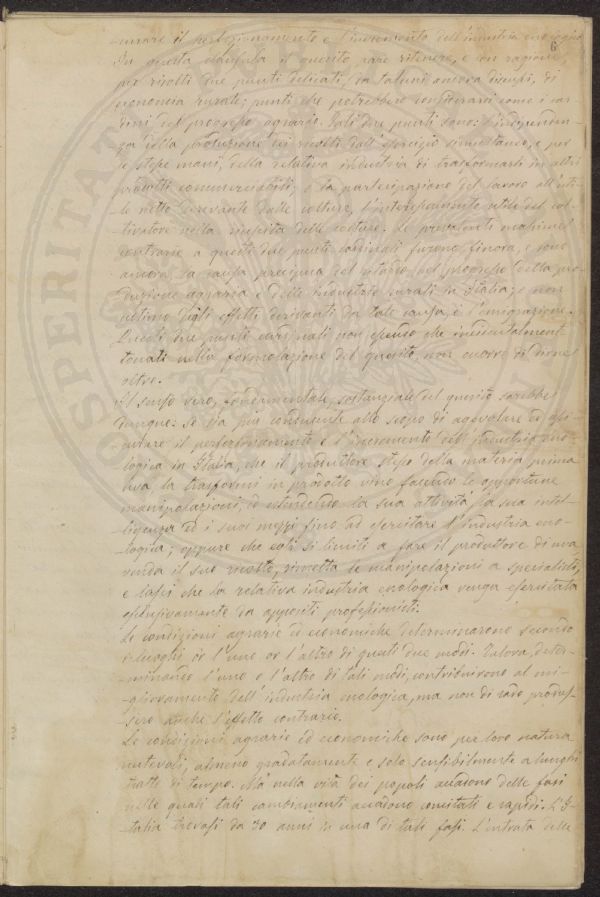 6
-curare il perfezionamento e l'incremento dell'industria enologica.
In questa clausula il quesito, pare ritenere, e con ragione,
per risolti due punti delicati, da taluni ancora discussi, di
economia rurale; punti che potrebbero considerarsi come i car-
dini del progresso agrario. Tali due punti sono: l'indipenden-
za della produzione dei raccolti dall'esercizio simultaneo, e per
le stesse mani, della relativa industria di trasformarli in altri
prodotti commerciabili; e la partecipazione del lavoro all'uti-
le netto derivante dalle colture, l'interessamento utile del col-
tivatore nella riuscita delle colture. Le
contrarie a questi due punti cardinali furono finora, e sono
ancora la causa precipua del ritardo nel progresso della pro-
duzione agraria e delle industrie rurali in Italia; e non
ultimo degli effetti derivanti da tale causa, è l'emigrazione.
Questi due punti cardinali non essendo che incidentalmente
toccati nella formolazione del quesito, non occorre di dirne
oltre.
Il senso vero, fondamentale, sostanziale del quesito sarebbe
dunque: Se sia più conducente allo scopo di agevolare ed assi-
curare il perfezionamento e l'incremento dell'industria eno-
logica in Italia, che il produttore stesso della materia prima
uva, la trasformi in prodotto vino facendo le opportune
manipolazioni, ed estendendo la sua attività, la sua intel-
ligenza ed i suoi mezzi fino ad esercitare l'industria eno-
-logica; oppure che esti si limiti a fare il produttore di uva,
venda il suo raccolto, rimetta le manipolazioni a specialisti,
e lasci che la relativa industria enologica venga esercitata
esclusivamente da appositi professionisti.
Le condizioni agrarie ed economiche determinarono secondo
i luoghi, or l'uno or l'altro di questi due modi. Talora deter-
minando l'uno e l'altro di tali modi, contribuirono al mi-
-glioramento dell'industria enologica, ma non di rado produs-
sero anche l'effetto contrario.
Le condizioni agrarie ed economiche sono per loro natura
mutevoli, almeno gradatamente e solo sensibilmente a lunghi
tratti di tempo. Ma nella vita dei popoli accadono delle fasi
nelle quali tali cambiamenti accadono concitati e rapidi. L'I-
talia trovasi da 30 anni in una di tali fasi. L'entrata delle
PROSPERITAT